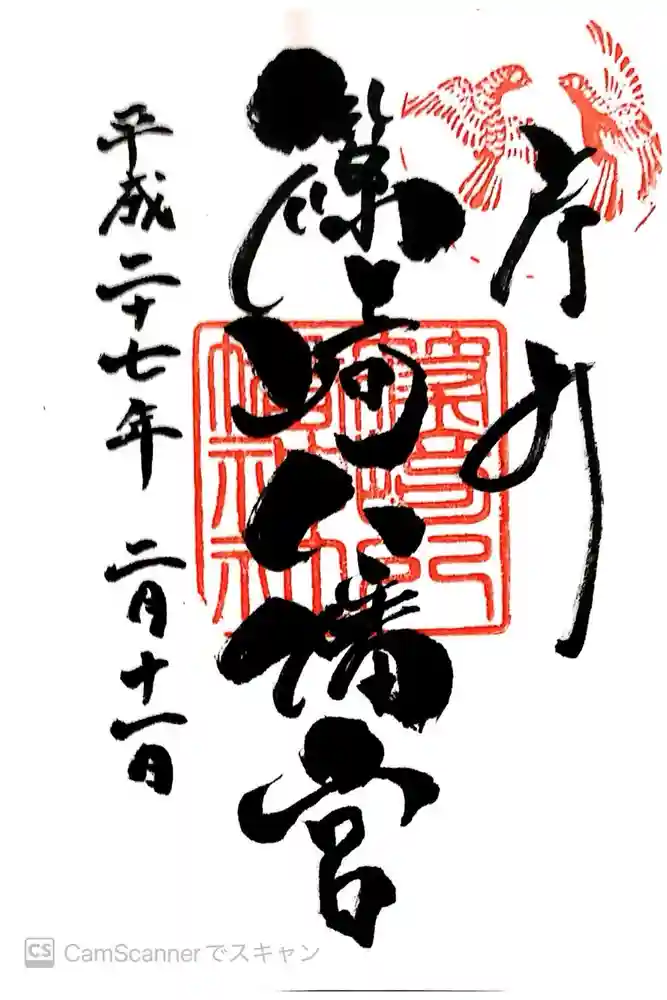 篠崎八幡宮
平成二十七年 二月十一日
CS CamScannerでスキャン